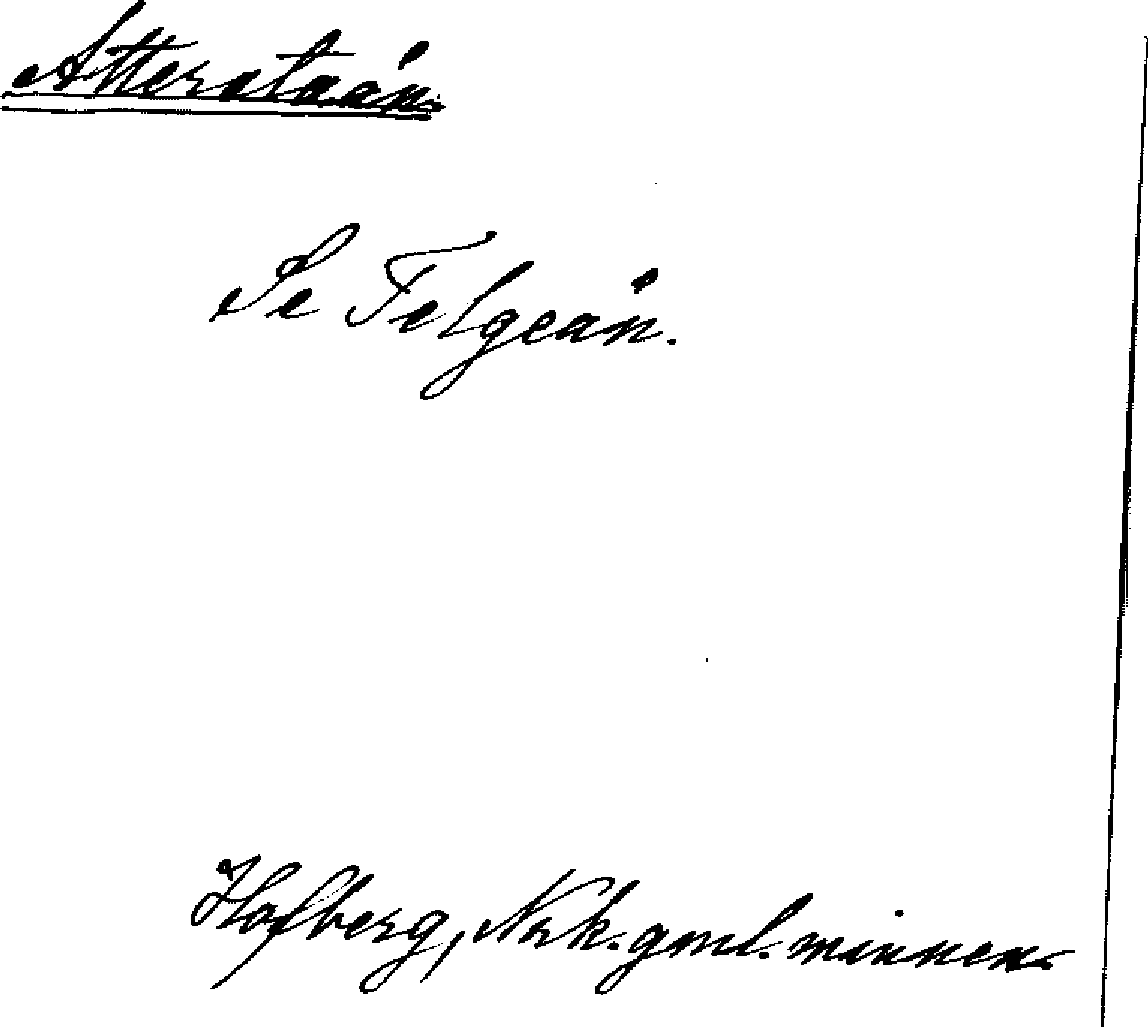 Atterataån.
Se Felgeån.
Hofberg, Nrk. gml. minnen.